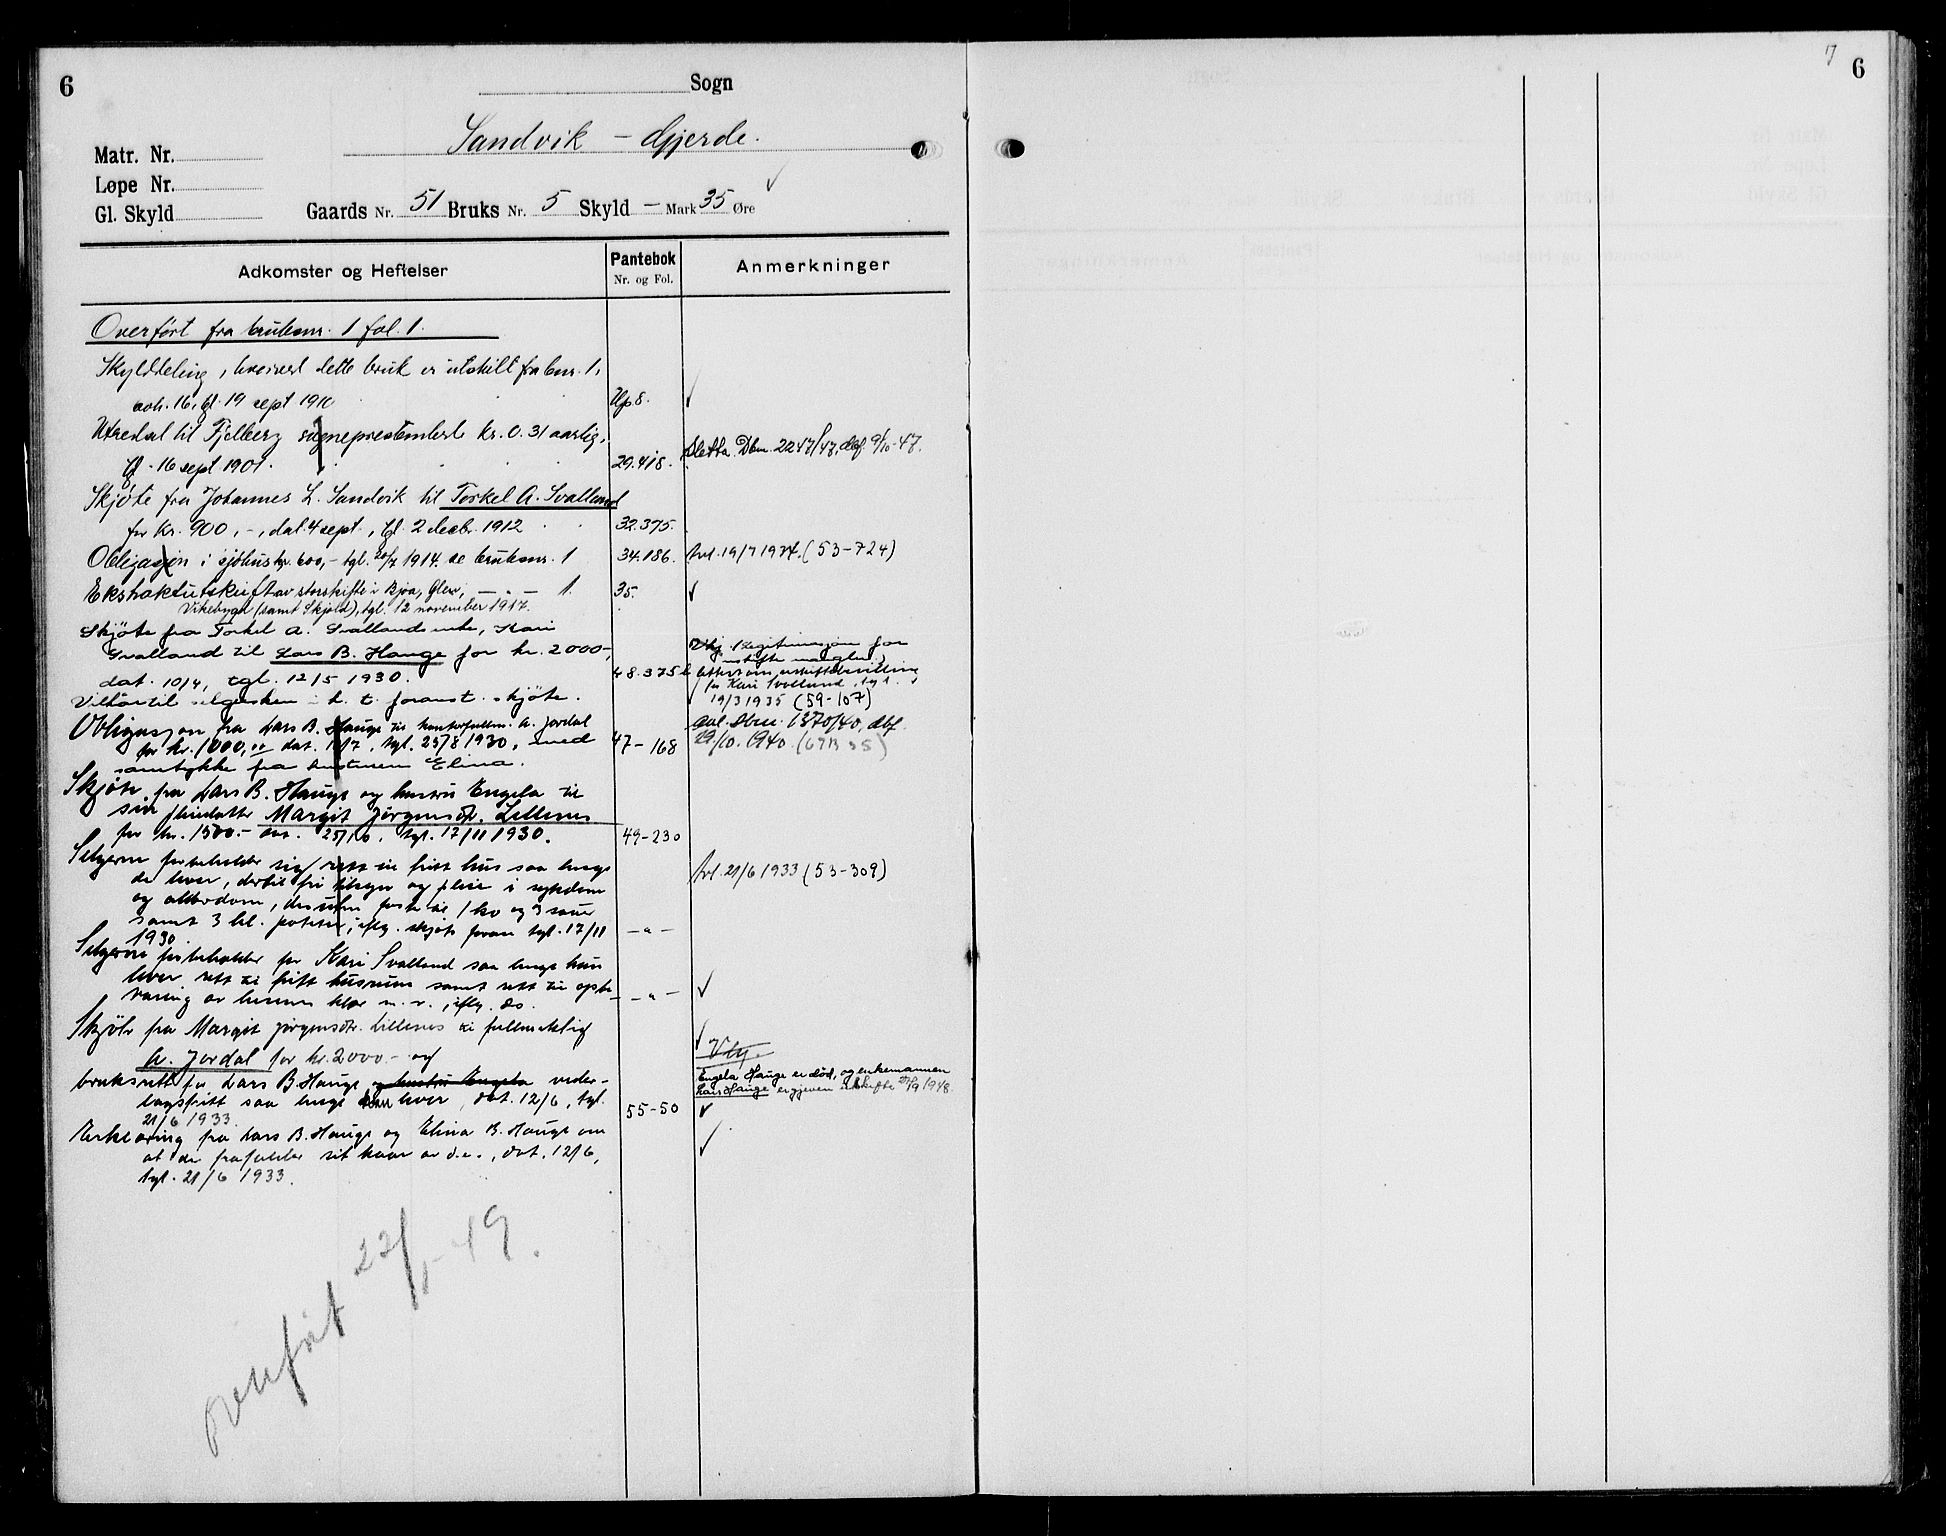 6
Sogn
Sandvik - Gjerde.
Matr. Nr.
Løpe Nr.
Gl. Skyld
Gaards Nr. 51 Bruks Nr. 5 Skyld — Mark 35 Øre ✓
Adkomster og Heftelser
Pantebok
Nr. og Fol.
Anmerkninger
Overført fra bruksnr. 1 fol. 1.
Skylddeling, hvorved dette bruk er utskilt fra bnr. 1,
avh. 16, tgl. 19 sept 1910 Utp 8. ✓
Utredsel til Fjelberg sogneprestembed kr. 0.31 aarlig,
tgl. 16 sept 1901. 29.418. Sletta. Dbnr. 2247/47, dbf. 9/10-47.
Skjøte fra Johannes L. Sandvik til Torkel A. Svalland
for kr. 900,-, dat. 4 sept., tgl. 2 decbr. 1912 32.375.
Obligasjon i sjøhus kr. 600,- tgl. 20/7 1914. se bruksnr. 1 34.186. Avl. 19/7 1934. (53-724)
Ekstraktutskrift av storskifte i Bjoa, Ølen, — " — 1. 35. ✓
Vikebygd (samt Skjold), tgl. 12 november 1917.
Skjøte fra Torkel A. Svallands enke, Kari
Svalland til Lars B. Hauge for kr. 2000,-,
dat. 10/4, tgl. 12/5 1930. 48.375
Vhj. Legitimasjon for
uskifte mangler.
Attest om uskiftebevilling
for Kari Svalland, tgl.
19/3 1935 (59-107)
Vilkår til selgersken i h. t. foranst. skjøte.
Obligasjon fra Lars B. Hauge til kontorfullm. A. Jordal
for kr. 1000,00 dat. 11/7, tgl. 23/8 1930, med 47-168
samtykke fra hustruen Elina.
Avl. Dbnr. 1370/40, dbf.
29/10. 1940.
Skjøte fra Lars B. Hauge og hustru Engela til
sin pleiedatter Margit Jørgensdtr. Lillenes
for kr. 1500.- dat. 25/10, tgl. 17/11 1930. 49-230
Selgerne forbeholder sig rett til fritt hus saa lenge
de lever, dertil fri tilsyn og pleie i sykdom
og alderdom, dessuten foster til 1 ko og 3 sauer
samt 3 hl. poteter, iflg. skjøte foran tgl. 17/11
1930. — " —
Avl. 21/6 1933 (53-309)
Selgerne forbeholder for Kari Svalland saa lenge hun
lever rett til fritt husrum samt rett til opbe-
varing av hennes klær m. v., iflg. do. — " — ✓
Skjøte fra Margit Jørgensdtr. Lillenes til fullmektig
A. Jordal for kr. 2000.- og ✓ og
bruksrett for Lars B. Hauge og hustru Engela veder-
lagsfritt saa lenge han lever, dat. 12/6, tgl.
21/6 1933. 55-50 ✓
Vhj.
Engela Hauge er død, og enkemannen
Lars Hauge er gjeven uskifte 27/9 1948.
Erklæring fra Lars B. Hauge og Elina B. Hauge om
at de frafalder sit kaar av d.e., dat. 12/6,
tgl. 21/6 1933. ✓
overført 22/1-49.
7
6